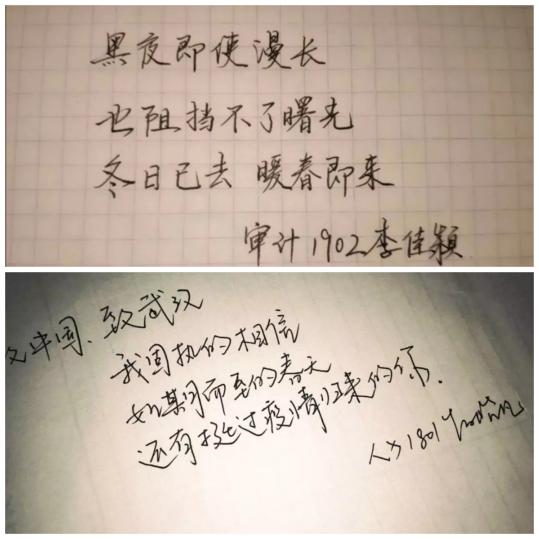 黑夜即使漫长
也阻挡不了曙光
冬日已去 暖春即来
审计1902李佳颖
中国、致武汉
我固执的相信
如期而至的春天
还有挺过疫情归来的你.
人文1801